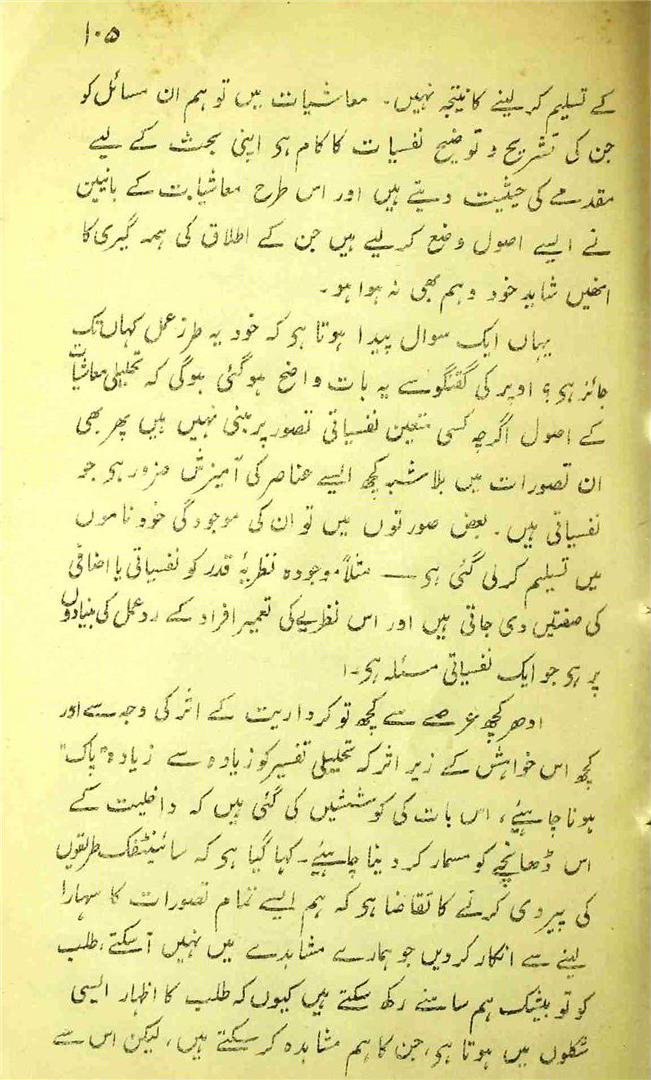 ۱۰۵
کے تسلیم کر لینے کا نتیجہ نہیں۔ معاشیات میں تو ہم ان مسائل کو
جن کی تشریح و توضیح نفسیات کا کام ہی اپنی بحث کے لیے
مقدمے کی حیثیت دیتے ہیں اور اس طرح معاشیات کے بانیین
نے ایسے اصول وضع کر لیے ہیں جن کے اطلاق کی ہمہ گیری کا
انھیں شاید خود وہم بھی نہ ہوا ہو۔
یہاں ایک سوال پیدا ہوتا ہی کہ خود یہ طرز عمل کہاں تک
جائز ہی؟ اوپر کی گفتگو سے یہ بات واضح ہو گئی ہوگی کہ تحلیلی معاشیات
کے اصول اگرچہ کسی متعین نفسیاتی تصور پر مبنی نہیں ہیں پھر بھی
ان تصورات میں بلا شبہ کچھ ایسے عناصر کی آمیزش ضرور ہی جو
نفسیاتی ہیں۔ بعض صورتوں میں تو ان کی موجودگی خود ناموں
میں تسلیم کر لی گئی ہی — مثلاً موجودہ نظریۂ قدر کو نفسیاتی یا اضافی
کی صفتیں دی جاتی ہیں اور اس نظریے کی تعمیر افراد کے ردعمل کی بنیادوں
پر ہی جو ایک نفسیاتی مسئلہ ہی۔
ادھر کچھ عرصے سے کچھ تو کرداریت کے اثر کی وجہ سے اور
کچھ اس خواہش کے زیر اثر کہ تحلیلی تفسیر کو زیادہ سے زیادہ "پاک"
ہونا چاہیئے، اس بات کی کوششیں کی گئی ہیں کہ داخلیت کے
اس ڈھانچے کو مسمار کر دینا چاہیئے۔ کہا گیا ہی کہ سائینٹفک طریقوں
کی پیروی کرنے کا تقاضا ہی کہ ہم ایسے تمام تصورات کا سہارا
لینے سے انکار کر دیں جو ہمارے مشاہدے میں نہیں آ سکتے، طلب
کو تو بیشک ہم سامنے رکھ سکتے ہیں کیوں کہ طلب کا اظہار ایسی
شکلوں میں ہوتا ہی، جن کا ہم مشاہدہ کر سکتے ہیں، لیکن اس سے